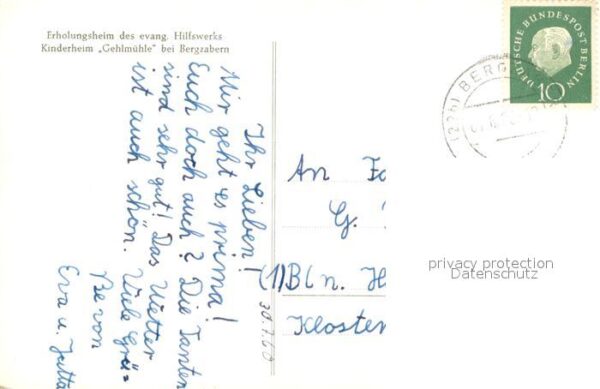 Erholungsheim des evang. Hilfswerks
Kinderheim „Gehlmühle" bei Bergzabern
Ihr Lieben!
Mir geht es prima!
Euch doch auch? Die Tanten
sind sehr gut! Das Wetter
ist auch schön. Viele Grü=
ße von
Eva u. Jutta
30.7.60
DEUTSCHE BUNDESPOST BERLIN
10
(22b) BERG
An Fa
G.
(1) Bln. H
Kloster
privacy protection
Datenschutz